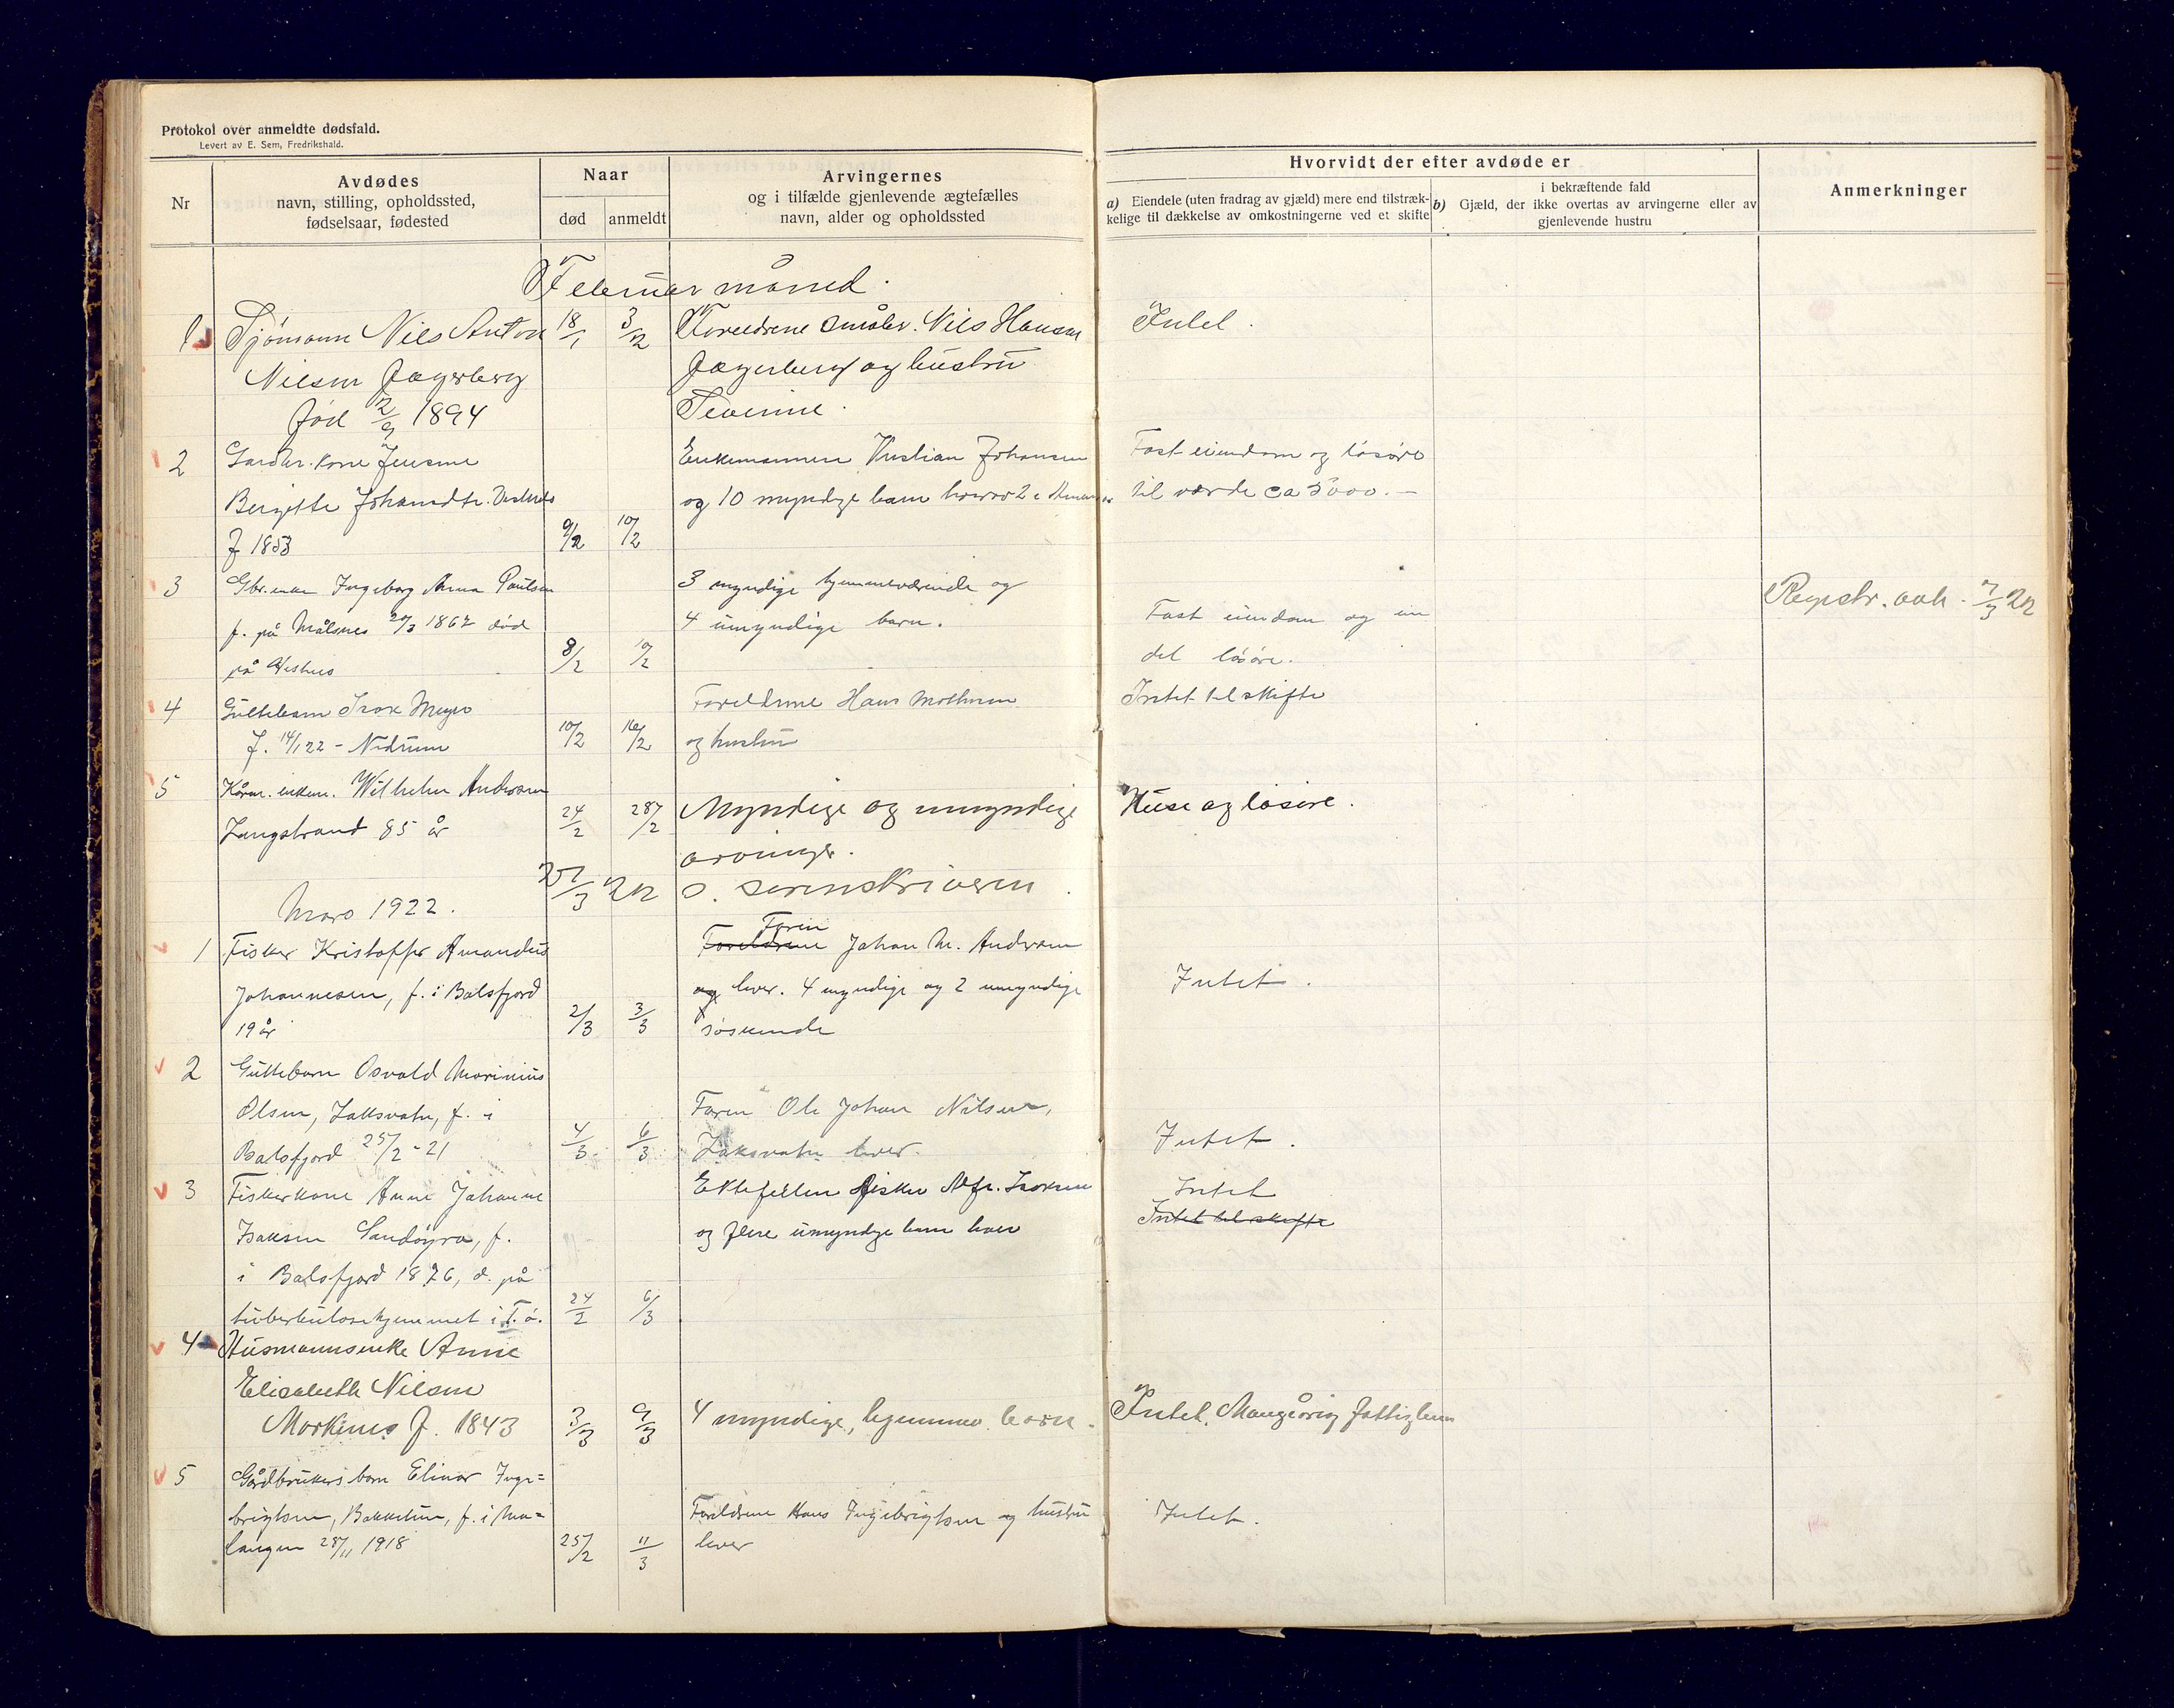 Protokol over anmeldte dødsfald.
Levert av E. Sem, Fredrikshald.
Nr
Avdødes
navn, stilling, opholdssted,
fødselsaar, fødested
Naar
død
anmeldt
Arvingernes
og i tilfælde gjenlevende ægtefælles
navn, alder og opholdssted
Hvorvidt der efter avdøde er
a) Eiendele (uten fradrag av gjæld) mere end tilstræk-
kelige til dækkelse av omkostningerne ved et skifte
i bekræftende fald
b) Gjæld, der ikke overtas av arvingerne eller av
gjenlevende hustru
Anmerkninger
Februar måned.
1 Sjömann Nils Anton 18/1 3/2 Foreldrene småbr. Nils Hansen Intet.
Nilsen Fagerberg Fagerberg og hustru
Født 2/9 1894
2 Gardbr. kone Jensine Enkemannen Kristian Johansen Fast eiendom og løsøre
Bergitte Johansdtr. og 10 myndige barn hvorav 2 i til værde ca 5000.-
F 1853 9/2 10/2
3 Gbr. enke Ingeborg Anna Paulsen 3 myndige hjemmeværende og Registr. avh. 7/3 22
f. på Målsnes 20/3 1862 død 4 umyndige barn. Fast eiendom og en
på 8/2 10/2 del løsøre.
4 Guttebarn Isak Meyer Foreldrene Hans Mothman Intet til skifte
f. 14/1 22 - 10/2 16/2 og hustru
5 Kårm. enkem. Wilhelm Andersen Myndige og umyndige Huse og løsøre.
Langstrand 85 år 24/2 28/2
arvinger.
27/3 22 s. sorenskriveren.
Mars 1922.
1 Fisker Kristoffer Amandus Faren
Foreldrene Johan M. Andersen
Johannesen, f. i Balsfjord og lever. 4 myndige og 2 umyndige Intet.
19 år 2/3 3/3 søskende
2 Guttebarn Osvald Marinius
Olsen, Laksvatn, f. i Faren Ole Johan Nilsen,
Balsfjord 25/2 - 21 4/3 6/3 Laksvatn lever. Intet.
3 Fiskerkone Anne Johanne Ektefellen fisker Alfr. Isaksen Intet
Isaksen Sandøyra, f. og flere umyndige barn lever Intet til skifte
i Balsfjord 1876, d. på
tuberkulosehjemmet i T.ö. 24/2 6/3
4 Husmannsenke Anne
Elisabeth Nilsen
Markenes f. 1843 3/3 9/3 4 myndige, hjemmev. barn. Intet. Mangeårig fattiglem
5 Gårdbrukers barn Elinor Inge=
brigtsen, Bakketun, f. i Ma= Foreldrene Hans Ingebrigtsen og hustru Intet.
langen 28/11 1918 25/2 11/3 lever